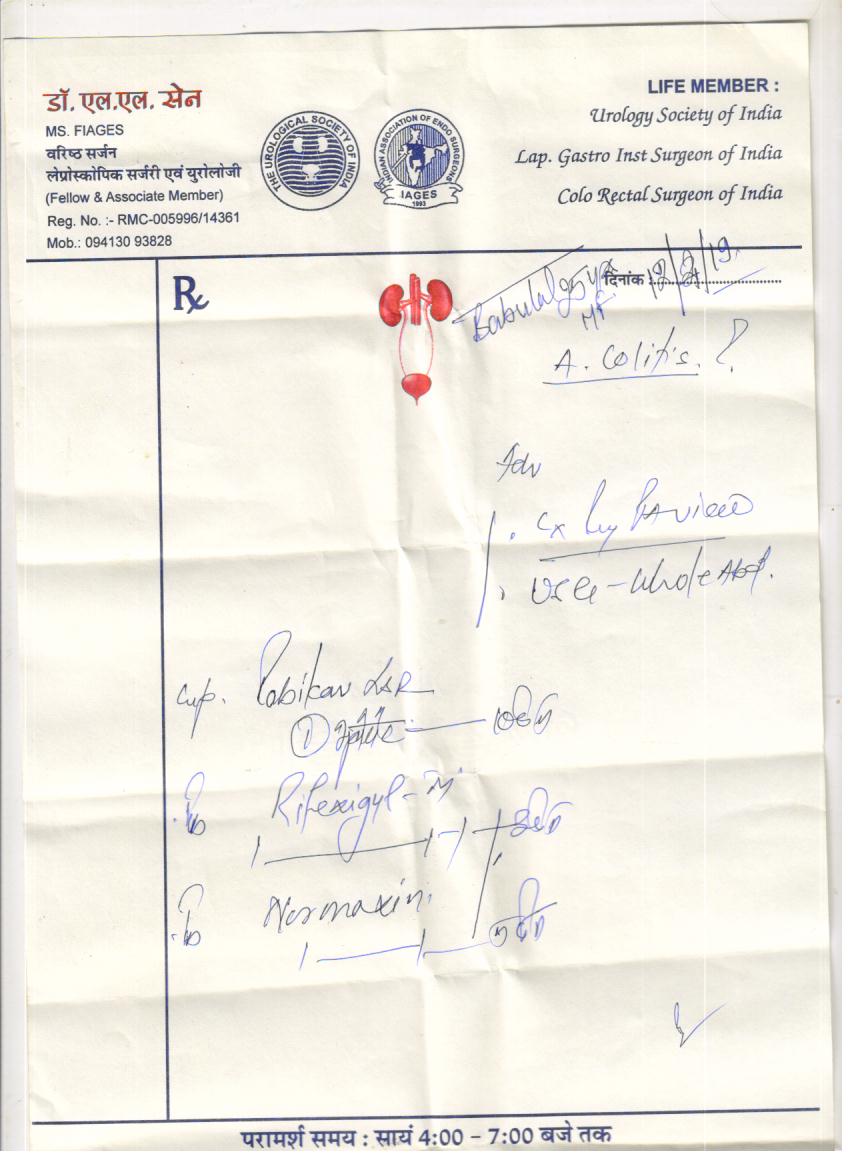 डॉ. एल.एल. सेन
MS. FIAGES
वरिष्ठ सर्जन
लेप्रोस्कोपिक सर्जरी एवं यूरोलोजी
(Fellow & Associate Member)
Reg. No. :- RMC-005996/14361
Mob.: 094130 93828
THE UROLOGICAL SOCIETY OF INDIA
INDIAN ASSOCIATION OF ENDO SURGEONS
IAGES
1993
LIFE MEMBER :
Urology Society of India
Lap. Gastro Inst Surgeon of India
Colo Rectal Surgeon of India
Rx
दिनांक : 12/2/19
Babulal
A. Colitis. ?
Adv
PA View
USG - Whole Abd.
Cap. Rabikav LSR
①
Rifexigyl - M
Normaxin
परामर्श समय : सायं 4:00 - 7:00 बजे तक